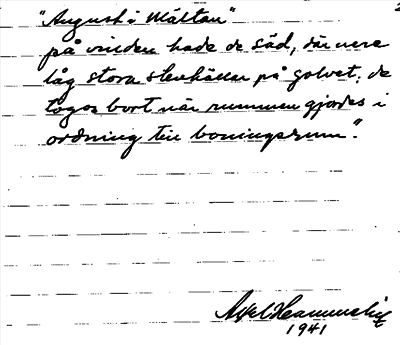 "August i Mältan"
på vinden hade de säd, där nere
låg stora stenhällar på golvet; de
togos bort när rummen gjordes i
ordning till boningsrum."
Axel
1941